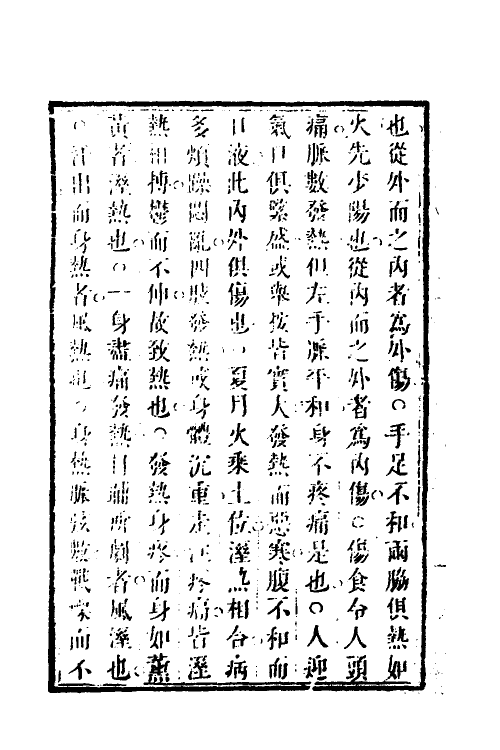 也從外而之內者為外傷○手足不和兩脇俱熱如
火先少陽也從內而之外者為內傷○傷食令人頭
痛脈數發熱但左手脈平和身不疼痛是也○人迎
氣口俱緊盛或舉按皆實大發熱而惡寒腹不和而
口液此內外俱傷也○夏月火乘土位溼熱相合病
多煩躁悶亂四肢發熱或身體沉重走注疼痛皆溼
熱相搏鬱而不伸故致熱也○發熱身疼而身如薰
黃者溼熱也○一身盡痛發熱日晡所劇者風溼也
○汗出而身熱者風熱也○身熱脈弦數戰慄而不